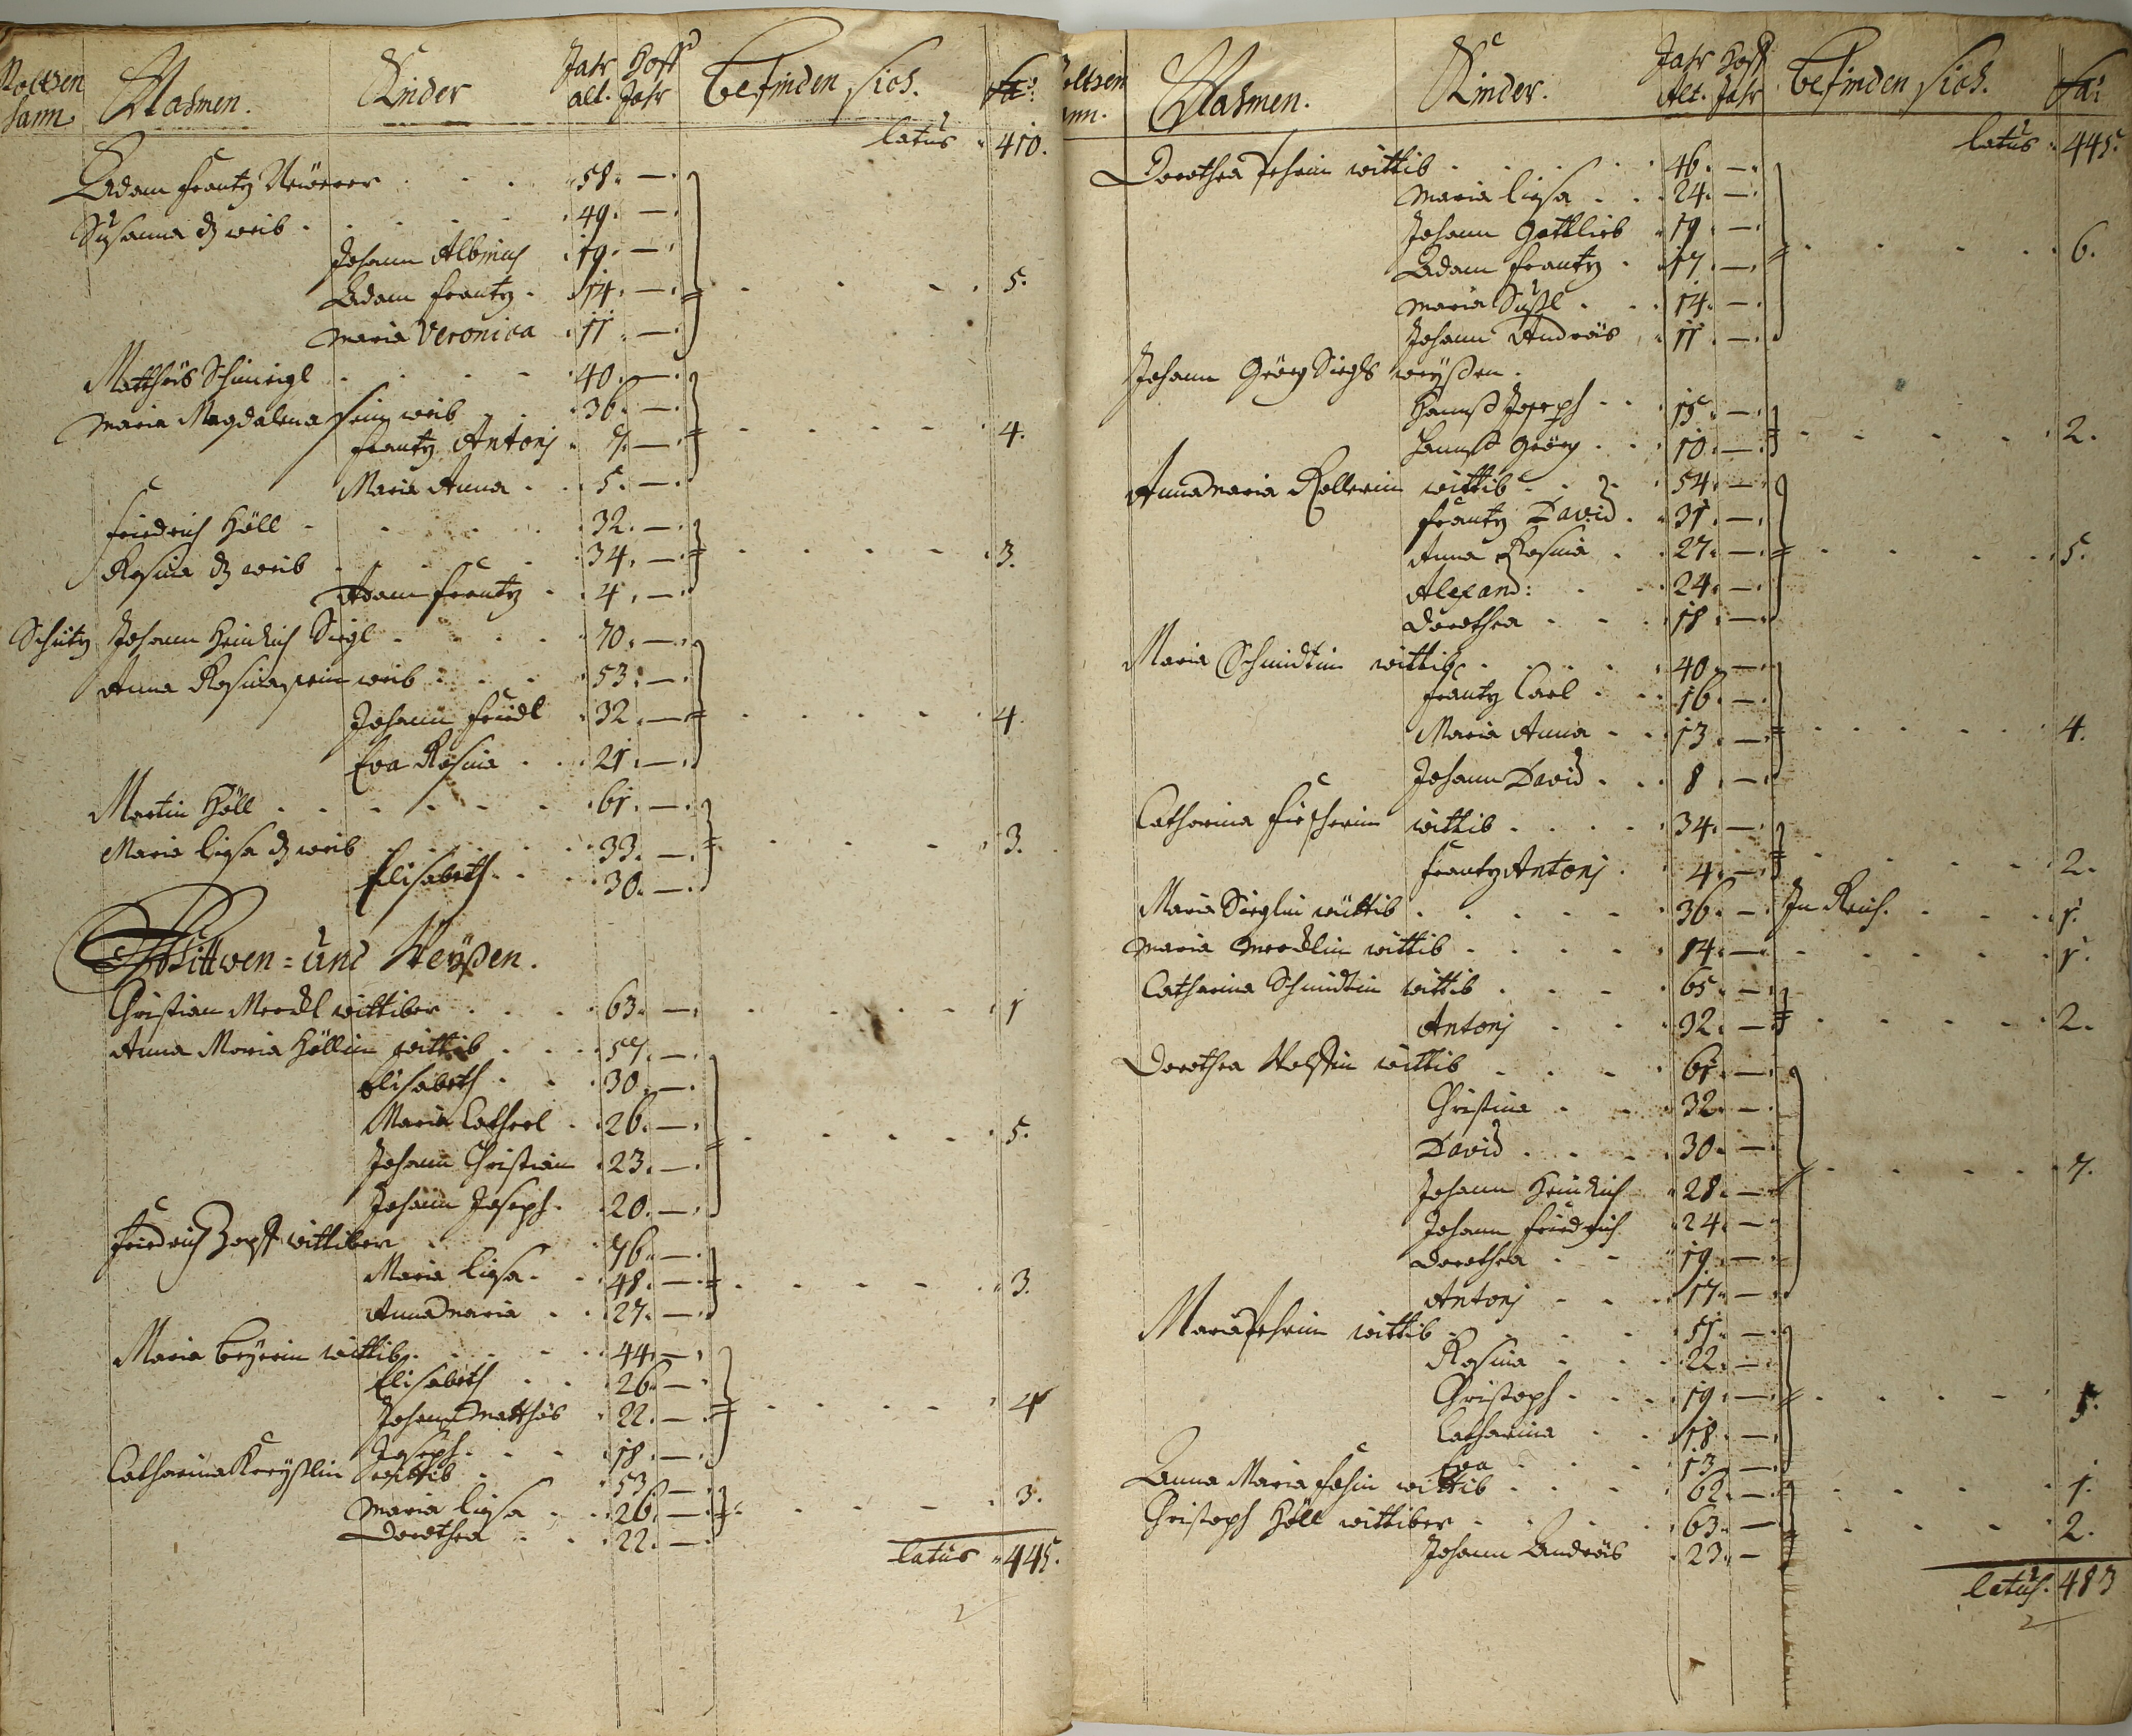 Nahmen. Kinder Jahr alt. Hoff Jahr befinden sich. Sa:
latus 410.
Adam Frantz 58. —
Susanna d weib 49. —
Johann Albinus 19. —
Adam Frantz 14. —
Maria Veronica 11. —
5.
Matthäs Schmiegl 40. —
Maria Magdalena sein weib 36. —
Frantz Antonj 7. —
4.
Maria Anna 5. —
Friedrich Höll 32. —
Rosina d weib 34. —
3.
Adam Frantz 4. —
Schütz Johann Heinrich Siegl 70. —
Anna Rosina sein weib 53. —
Johann Friedl 32. —
4.
Eva Rosina 21. —
Martin Höll 61. —
Maria Liesa d weib 33. —
3.
Elisabeth 30. —
Wittwen = und Weyßen.
Christian Merckl wittiber 63. — 1
Anna Maria Höllin wittib 57. —
Elisabeth 30. —
Maria Catherl 26. —
5.
Johann Christian 23. —
Johann Joseph 20. —
Friedrich Zapff wittiber 76. —
Maria Liesa 48. —
3.
Anna Maria 27. —
Maria Beyerin wittib 44. —
Elisabeth 26. —
Johann Matthäs 22. —
4
Joseph 18. —
Catharina Kreyßlin wittib 53 —
Maria Liesa 26. —
3.
Dorothea 22. —
latus 445.
Nahmen. Kinder. Jahr Alt. Hoff Jahr befinden sich. Sa:
latus 445.
Dorothea wittib 46. —
Maria Liesa 24. —
Johann Gottlieb 19. —
Adam Frantz 17. —
6.
Maria Sußl 14. —
Johann Andreas 11. —
Johann Georg Siegls weyßen.
Hannß Joseph 15. —
Hannß Georg 10. —
2.
Anna Maria Kellerin wittib 54. —
Frantz David 31. —
Anna Rosina 27. —
5.
Alexand: 24. —
Dorothea 18. —
Maria Schmidtin wittib 40. —
Frantz Carl 16. —
Maria Anna 13. —
4.
Johann David 8. —
Catharina Fischerin wittib 34. —
Frantz Antonj 4. —
2.
Maria Sieglin wittib 36. — In Reich. 1.
Maria Mercklin wittib 84. — 1.
Catharina Schmidtin wittib 65. —
Antonj 32. —
2.
Dorothea Wolffin wittib 61. —
Christina 32. —
David 30. —
7.
Johann Heinrich 28. —
Johann Friedrich 24. —
Dorothea 19. —
Antonj 17. —
Maria wittib 51. —
Rosina 22. —
Christoph 19. —
5.
Catharina 18. —
Eva 13. —
Anna Maria wittib 62. — 1.
Christoph Höll wittiber 63. —
2.
Johann Andreas 23. —
latus. 483